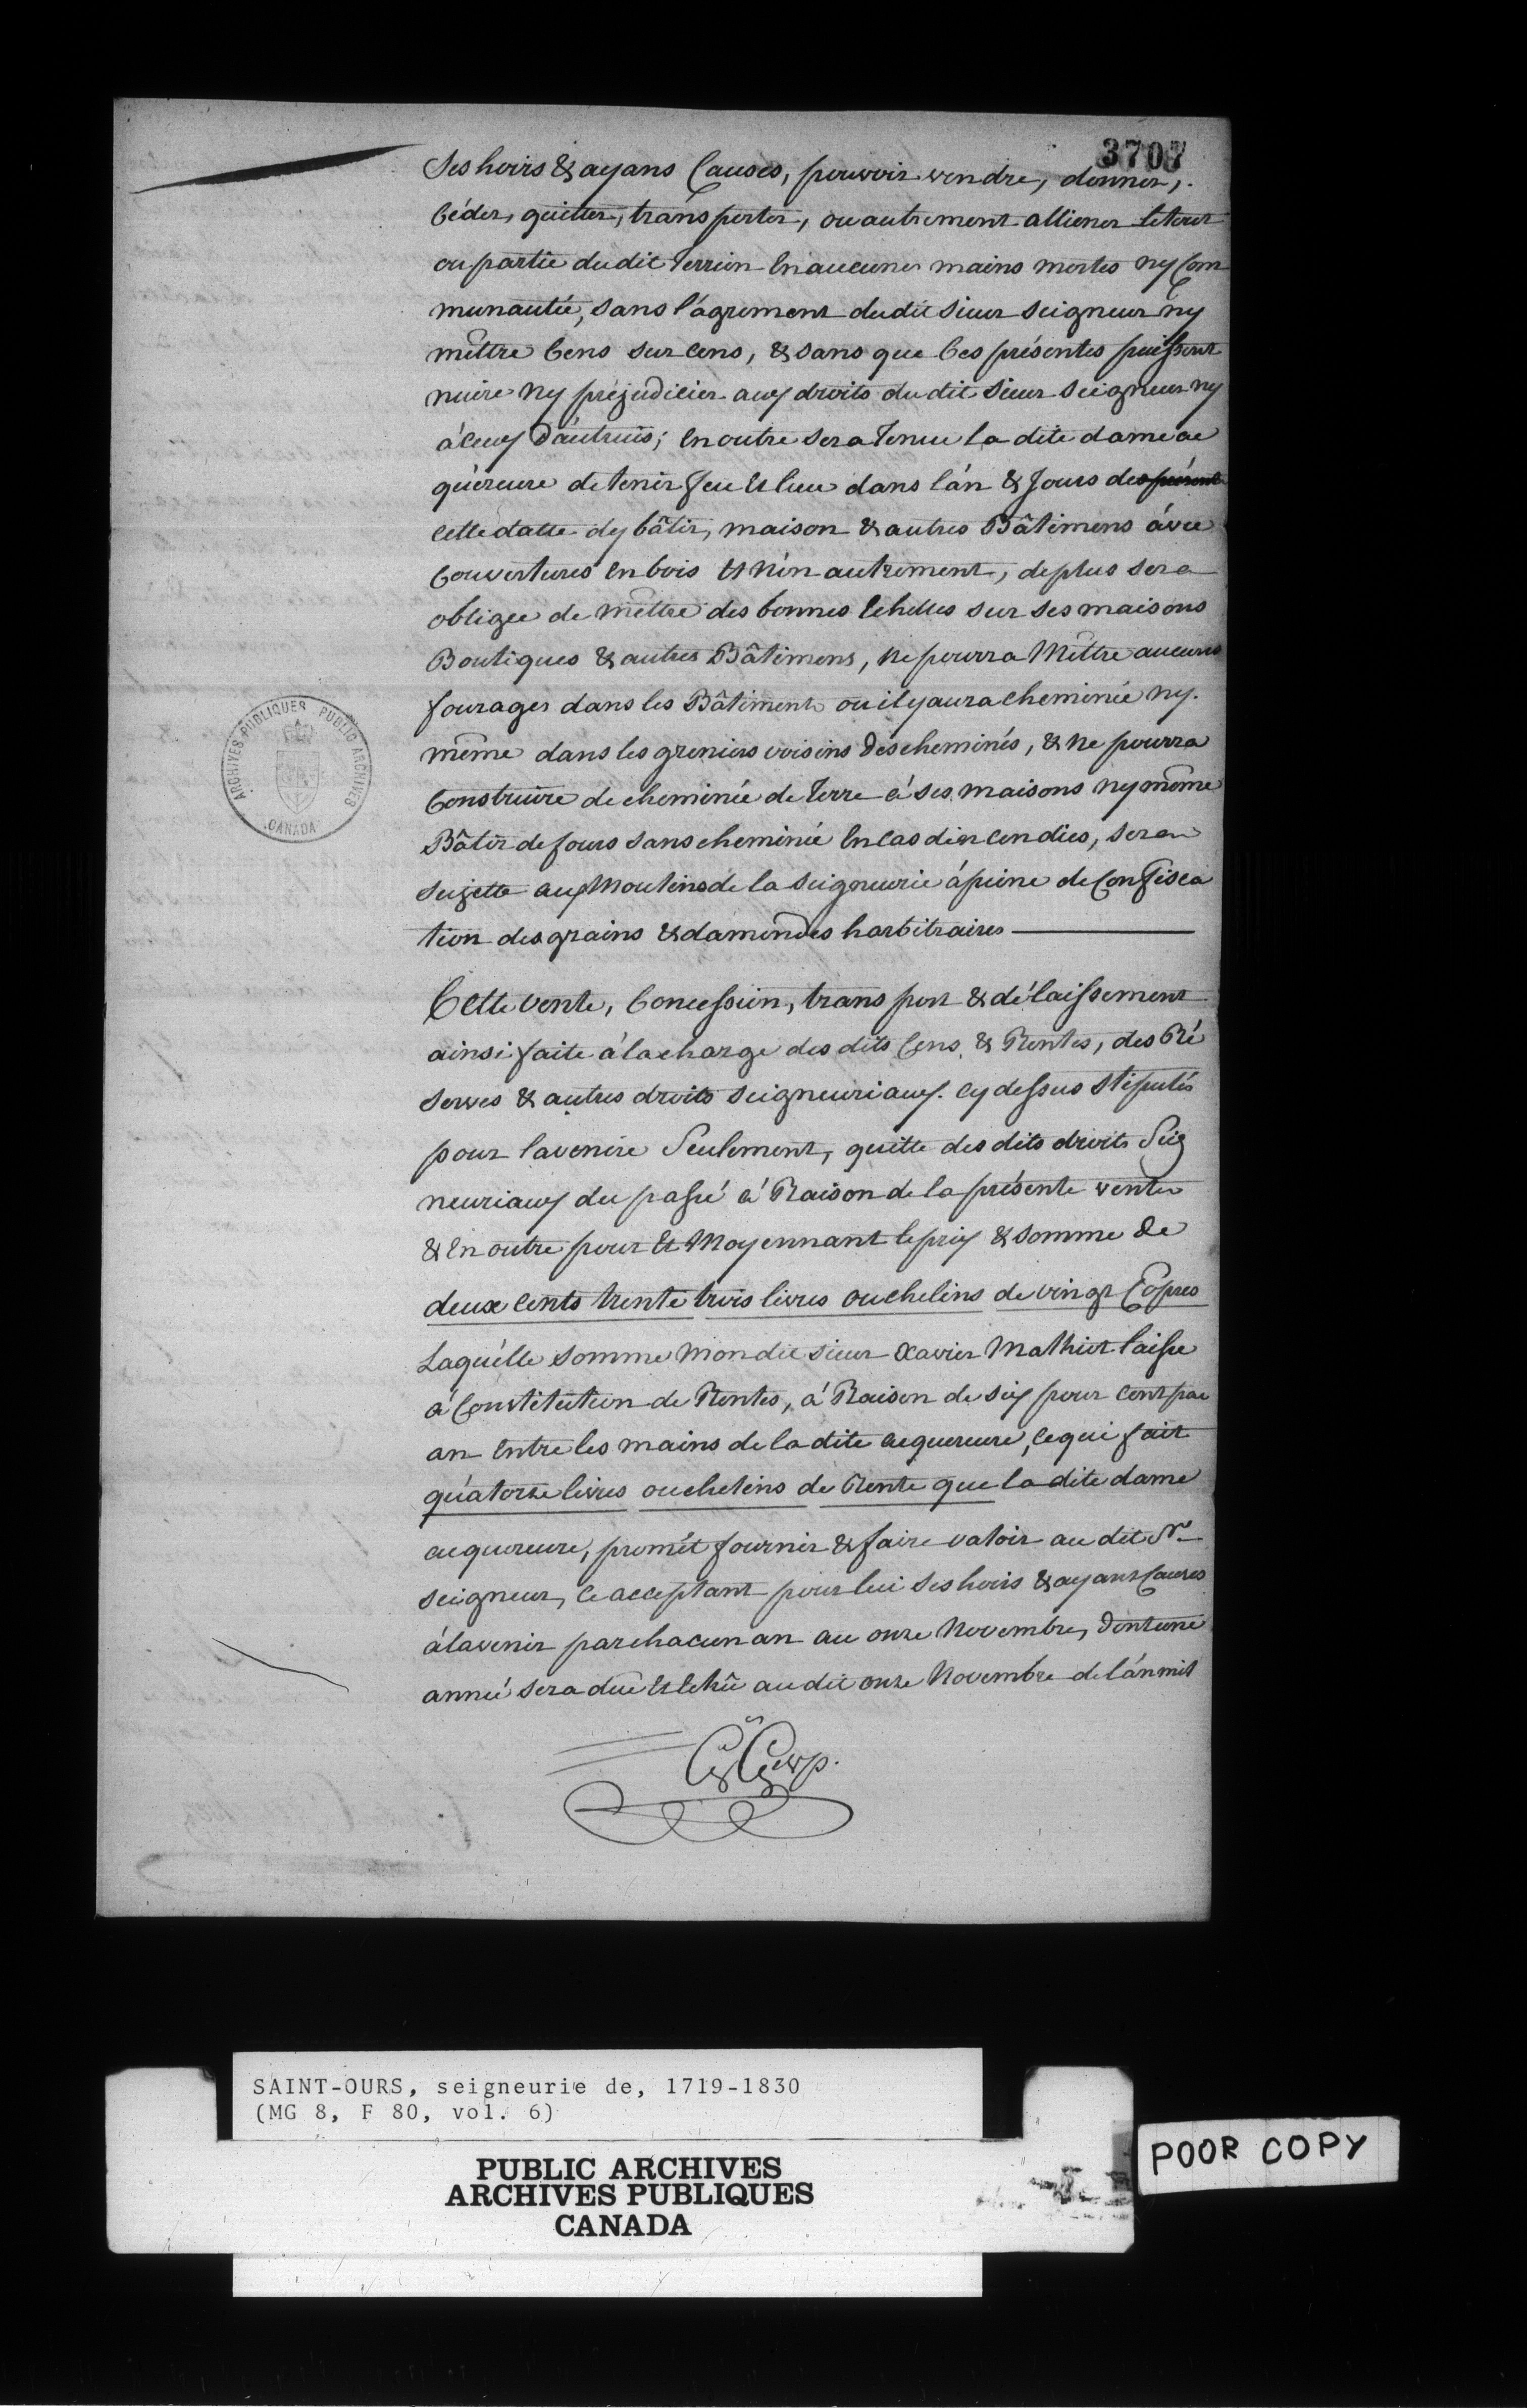 3707
Ses hoirs & ayans Causes, pouvoir vendre, donner,
Céder, quitter, transporter, ou autrement alliener letout
ou partie dudit Terrien En aucunes mains mortes ny Com
munautée, sans l'ágrement dudit sieur seigneur ny
mettre Cens sur cens, & sans que Ces présentes puissent
nuire ny préjudicier aux droits du dit sieur seigneur ny
à Ceux D'áutruis; En outre sera Tenue la dite dame ac
quéreure de tenir feu Et lieu dans l'án & Jours des présent
cette datte dy bâtir, maison & autres Bâtimens ávec
Couvertures En bois Et Nón autrement, de plus sera
obligée de mettre des bonnes Echelles sur ses maisons
Boutiques & autres Bâtimens, Ne pourra Mettre aucuns
fourages dans les Bâtiments ou il y aura cheminée ny.
même dans les greniers voisins des cheminés, & Ne pourra
Construire de cheminée de Terre à ses maisons ny même
Bâtir de fours sans cheminée En cas d'incendies, sera
Sujette aux Moulins de la seigneurie à peine de Confisca
tion des grains & damendes harbitraires
Cette vente, Concession, transport & délaissement
ainsi faite à la charge des dits Cens & Rentes, des Ré
serves & autres droits seigneuriaux. cy dessus stipulés
pour lavenire Seulement, quitte des dits droits Seig
neuriaux du passé à Raison de la présente vente
& En outre pour Et Moyennant le prix & somme de
deux cents trente trois livres ou chelins de vingt Copres
Laquélle somme Mondit sieur Xavier Mathiot laisse
à Constitution de Rentes, à Raison de six pour cent par
an Entre les mains de la dite acquereure, ce qui fait
quatorze livres ou chelins de Rente que la dite dame
acquereure, promét fournir & faire valoir au dit Sr
seigneur, Ce acceptant pour lui ses hoirs & ayant Causes
à lavenir par chacun an au onze Novembre, dont une
année sera dûe Et Echû au dit onze Novembre de l'án mil
ARCHIVES PUBLIQUES PUBLIC ARCHIVES
CANADA
SAINT-OURS, seigneurie de, 1719-1830
(MG 8, F 80, vol. 6)
PUBLIC ARCHIVES
ARCHIVES PUBLIQUES
CANADA
POOR COPY